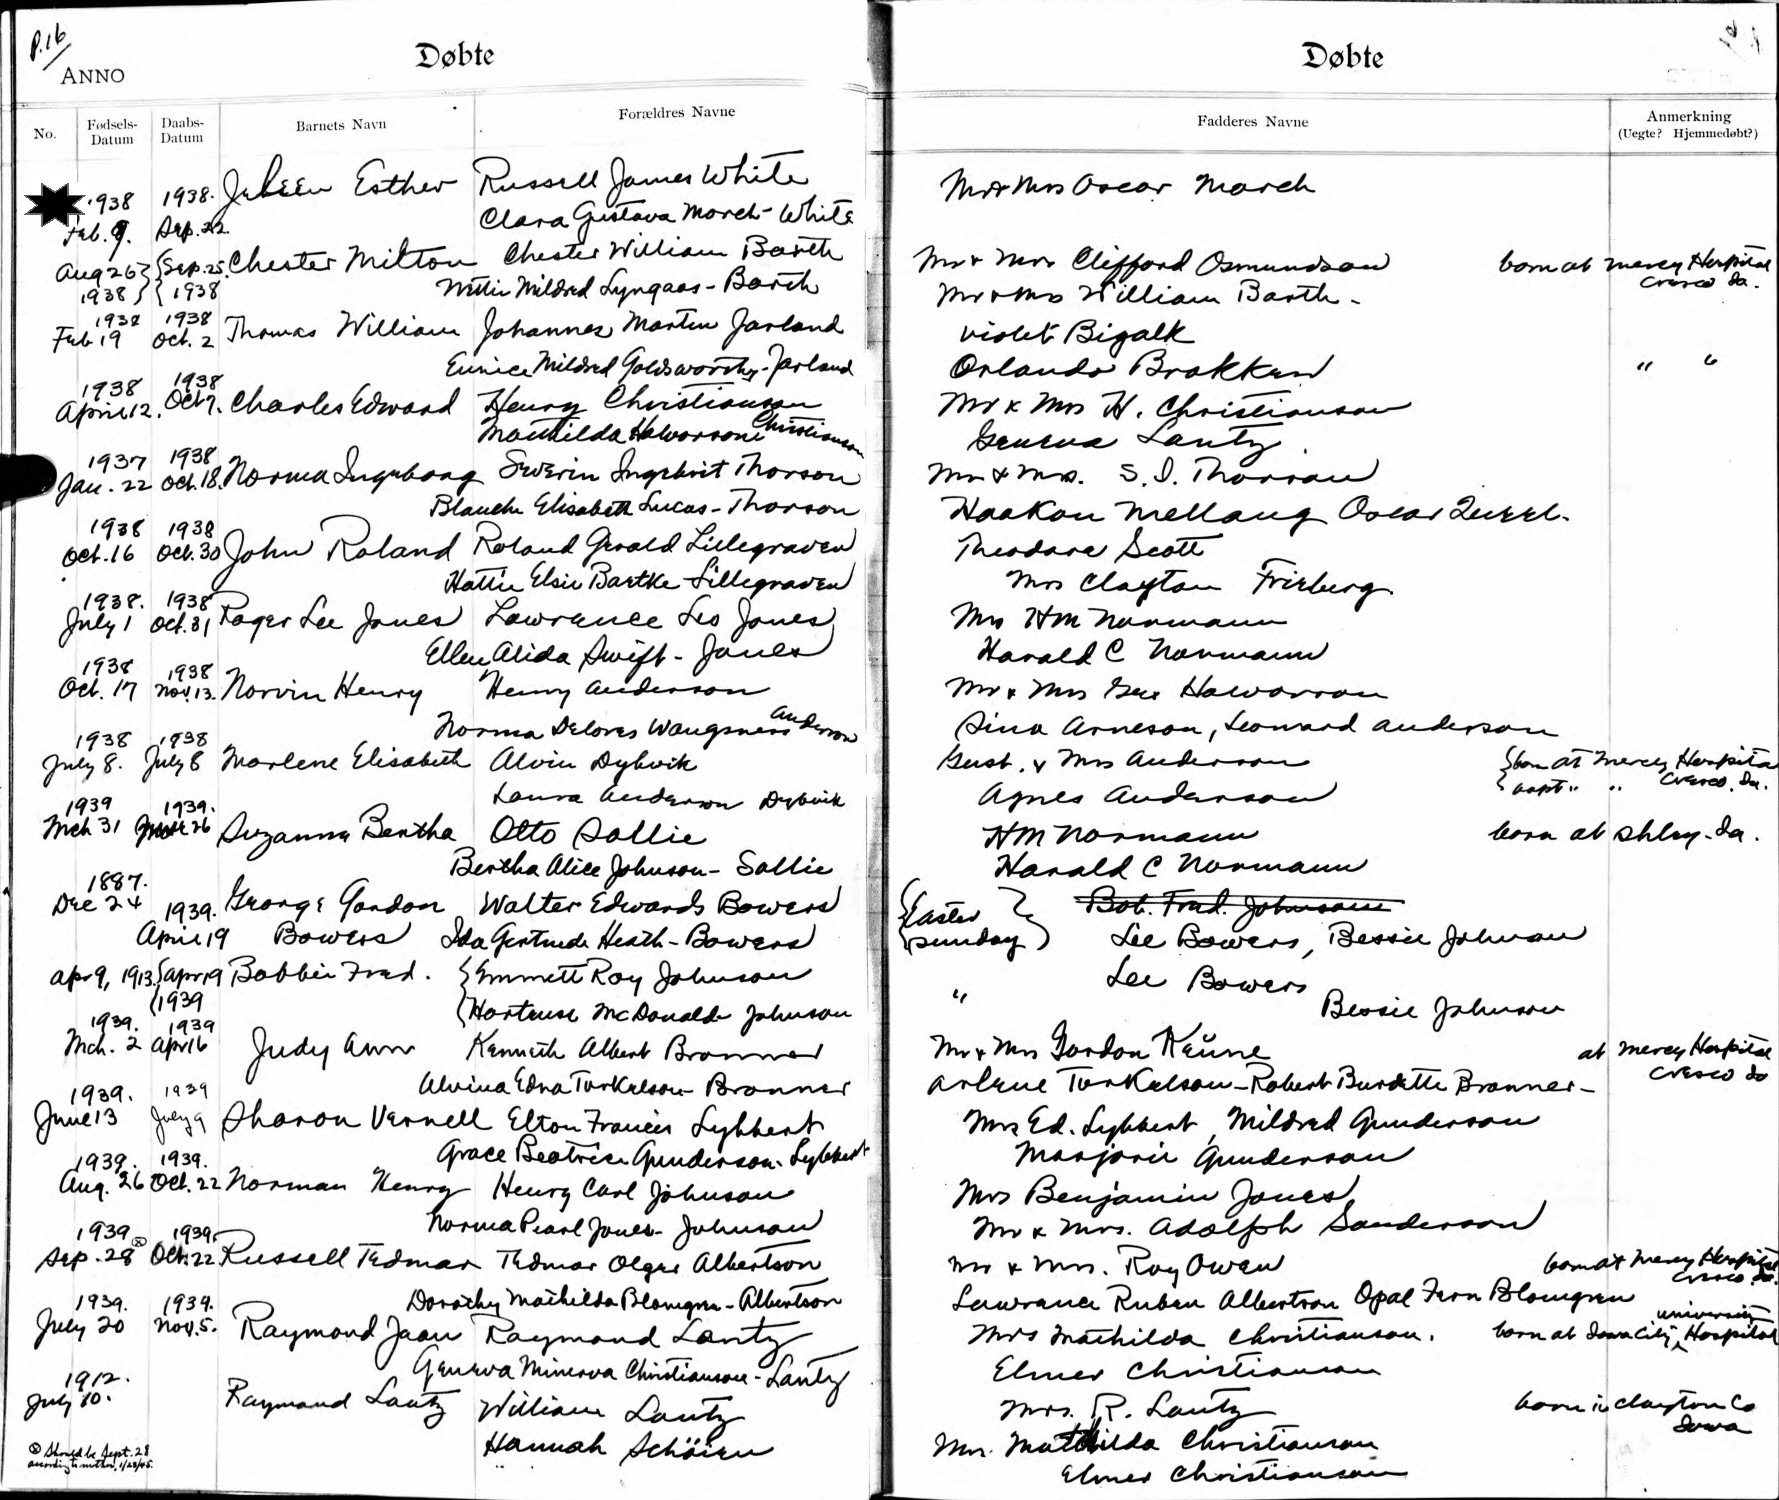 p.16
Døbte
ANNO
No.
Fødsels-
Datum
Daabs-
Datum
Barnets Navn
Forældres Navne
1938 1938. Esther Russell James White
Feb. 9. Sep. 22 Clara Gustava March - White
Aug 26 Sep. 25. Chester Milton Chester William Barth
1938 1938 Mildred Lyngaas - Barth
1938 1938
Feb 19 Oct. 2 Thomas William Johannes Martin Jarland
Eunice Mildred Goldsworthy - Jarland
1938 1938
April 12. Oct 7. Charles Edward Henry Christianson
Mathilda Halvorson Christianson
1937 1938
Jan. 22 Oct. 18. Norma Ingeborg Severin Ingebrit Thorson
Blanche Elisabeth Lucas - Thorson
1938 1938
Oct. 16 Oct. 30 John Roland Roland Gerald Lillegraven
Hattie Elsie Bartke - Lillegraven
1938. 1938
July 1 Oct. 31 Roger Lee Jones Lawrence Leo Jones
Ellen Alida Swift - Jones
1938 1938
Oct. 17 Nov. 13. Norvin Henry Henry Anderson
Norma Delores Waugsness Anderson
1938 1938
July 8. July 8 Marlene Elisabeth Alvin Dybvik
Laura Anderson Dybvik
1939 1939.
Mch 31 26 Suzanna Bertha Otto Sollie
Bertha Alice Johnson - Sollie
1887.
Dec 24 1939. George Gordon Walter Edwards Bowers
April 19 Bowers Ida Gertrude Heath - Bowers
Apr 9, 1913. Apr 19 Bobbie Fred. Emmett Roy Johnson
1939 Hortense McDonald Johnson
1939. 1939
Mch. 2 Apr 16 Judy Ann Kenneth Albert Bronner
Alvina Edna Torkelson - Bronner
1939. 1939
June 13 July 9 Sharon Vernell Elton Francis Lybbert
Grace Beatrice Gunderson - Lybbert
1939. 1939.
Aug. 26 Oct. 22 Norman Henry Henry Carl Johnson
Norma Pearl Jones - Johnson
1939 1939.
Sep. 28 Oct. 22 Russell Tedmar Tedmar Olger Albertson
Dorothy Mathilda Blomgren - Albertson
1939. 1939.
July 20 Nov. 5. Raymond Raymond Lantz
Geneva Minerva Christianson - Lantz
1912.
July 10. Raymond Lantz William Lantz
Hannah Schöien
Should be Sept. 28
according to mother, 1/28/45.
Døbte
Fadderes Navne
Anmerkning
(Uegte? Hjemmedøbt?)
Mr & Mrs Oscar March
Mr & Mrs Clifford Osmundson born at Mercy Hospital
Cresco Ia.
Mr & Mrs William Barth -
Violet Bigalk
Orlando Brakken " "
Mr & Mrs H. Christianson
Geneva Lantz
Mr & Mrs. S. I. Thorson
Haakon Mellang Oscar
Theodore Scott
Mrs Clayton Frieberg
Mrs HM Normann
Harald C Normann
Mr & Mrs Halvorson
Sina Arneson, Leonard Anderson
Gust. & Mrs Anderson born at Mercy Hospital
bapt " " Cresco, Ia.
Agnes Anderson
HM Normann born at Ia.
Harald C Normann
Easter Bob. Fred. Johnson
Sunday Lee Bowers, Bessie Johnson
Lee Bowers
" Bessie Johnson
Mr & Mrs Gordon Keune at Mercy Hospital
Cresco Ia
Arlene Torkelson - Robert Burdette Bronner -
Mrs Ed. Lybbert, Mildred Gunderson
Marjorie Gunderson
Mrs Benjamin Jones
Mr & Mrs. Adolph Sanderson
Mr & Mrs. Roy Owen born at Mercy Hospital
Cresco Ia.
Lawrence Ruben Albertson Opal Fern Blomgren
university
Mrs Mathilda Christianson. born at Iowa City Hospital
Elmer Christianson
Mrs. R. Lantz born in Clayton Co
Iowa
Mrs. Mathilda Christianson
Elmer Christianson